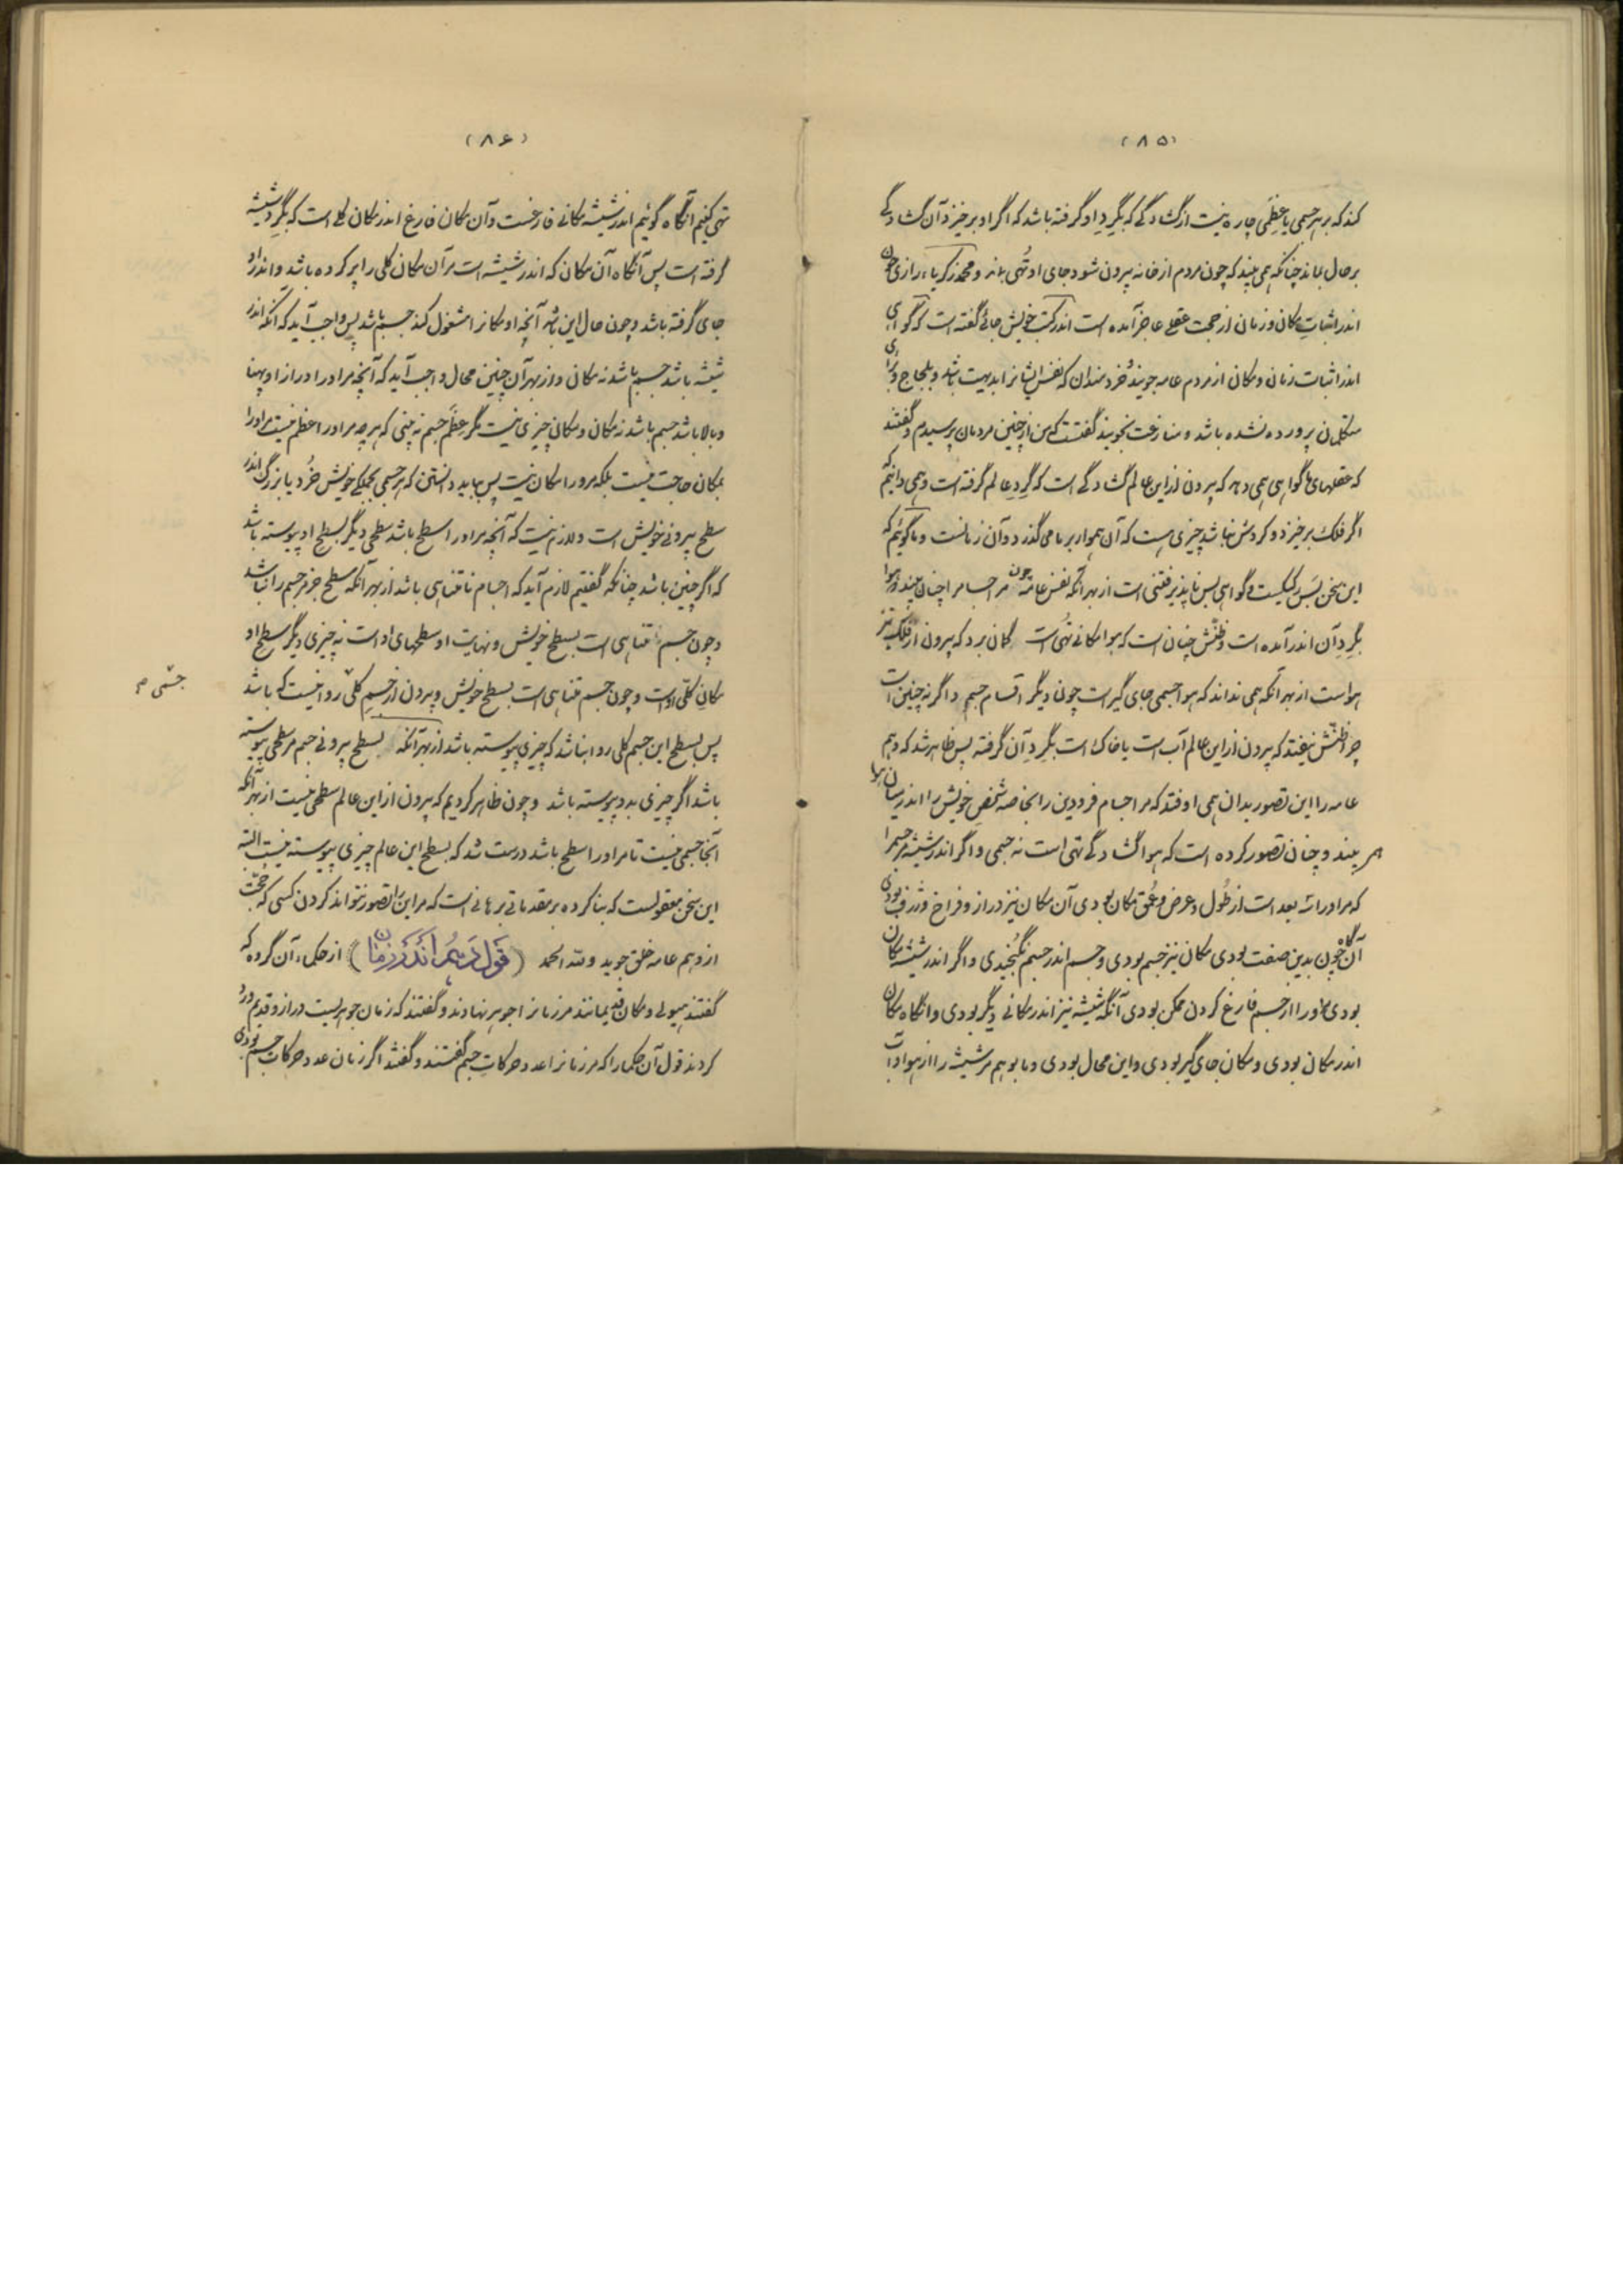 (۸۵)
کند که بر هر جسمی با عظمی چاره نیست از گشادگی که بگرد او گرفته باشد که اگر او برخیزد آن گشادگی
برحال بماند چنانکه همی بیند که چون مردم از خانه بیرون شود جای او تهی بماند و محمد زکریاء رازی چون
اندر اثبات مکان و زمان از حجت عقلی عاجز آمده است اندر کتب خویش جائی گفته است که گواهی
اندر اثبات زمان و مکان از مردم عامه جویند خردمندان که نفس ایشانرا بدیهت باشد و بلجاج و برای
متکلمان پرورده نشده باشد و منازعت نجویند گفتست که من از چنین مردمان پرسیدم و گفتند
که عقلهای ما گواهی همی دهد که بیرون از این عالم گشادگی است که گرد عالم گرفته است و همی دانیم که
اگر فلک برخیزد و گردش نباشد چیزی هست که آن هموار بر ما می گذرد و آن زمانست و ما گوئیم که
این سخن بس رکیکست و گواهی بس ناپذیرفتنی است از بهر آنکه نفس عامه چون مر اجسام را چنان بیند و هوا
بگرد آن اندر آمده است و ظنش چنان است که هوا مکانی تهی است گمان برد که بیرون از فلک نیز
هواست از بهر آنکه همی نداند که هوا جسمی جای گیر است چون دیگر اقسام جسم و اگر نه چنین است
چرا ظنش نیفتد که بیرون از این عالم آب است یا خاک است بگرد آن گرفته پس ظاهر شد که وهم
عامه را این تصور بدان همی اوفتد که مر اجسام فرودین را بخاصه شخص خویش را اندر میان هوا
همی بیند و چنان تصور کرده است که هوا گشادگی تهی است نه جسمی و اگر اندر شیشه مر جسم را
که مر او را سه بعد است از طول و عرض و عمق مکان بودی آن مکان نیز دراز و فراخ و ژرف بودی
آن گاه چون بدین صفت بودی مکان نیز جسم بودی و جسم اندر جسم نگنجیدی و اگر اندر شیشه مکان
بودی مر او را از جسم فارغ کردن ممکن بودی آنگه شیشه نیز اندر مکانی دیگر بودی و آنگاه مکان
اندر مکان بودی و مکان جای گیر بودی و این محال بودی و ما بوهم مر شیشه را از هوا و آب
(۸۶)
تهی کنیم آنگاه گوئیم اندر شیشه مکانی فارغست و آن مکان فارغ اندر مکان کلی است که بگرد شیشه
گرفته است پس آنگاه آن مکان که اندر شیشه است مر آن مکان کلی را پر کرده باشد و اندر او
جای گرفته باشد و چون حال این بود آنچه او مکانرا مشغول کند جسم باشد پس واجب آید که آنکه اندر
شیشه باشد جسم باشد نه مکان و از بهر آن چنین محال واجب آید که آنچه مر او را درازا و پهنا
و بالا باشد جسم باشد نه مکان و مکانی چیزی نیست مگر عظم جسم نه بینی که هر چه مر او را عظم نیست مر او را
بمکان حاجت نیست بلکه مر ورا مکان نیست پس بباید دانستن که هر جسمی بجملگی خویش خرد یا بزرگ اندر
سطح بیرونی خویش است و لازم نیست که آنچه مر او را سطح باشد سطحی دیگر بسطح او پیوسته باشد
که اگر چنین باشد چنانکه گفتیم لازم آید که اجسام نامتناهی باشد از بهر آنکه سطح جز مر جسم را نباشد
و چون جسم متناهی است بسطح خویش و نهایت او سطحهای او است نه چیزی دیگر سطح او
مکان کلی اوست و چون جسم متناهی است بسطح خویش و بیرون از جسم کلی روا نیست که باشد
جسمی م
پس بسطح این جسم کلی روا نباشد که چیزی پیوسته باشد از بهر آنکه بسطح بیرونی جسم مر سطحی پیوسته
باشد اگر چیزی بدو پیوسته باشد و چون ظاهر کردیم که بیرون از این عالم سطحی نیست از بهر آنکه
آنجا جسمی نیست تا مر او را سطح باشد درست شد که بسطح این عالم چیزی پیوسته نیست البته
این سخن معقولست که بنا کرده بر مقدماتی برهانی است که مر این را تصور نتواند کردن کسی که حجت
از وهم عامه خلق جوید ولله الحمد (قول دهم اندر زمان) از حکماء آن گروه که
گفتند هیولی و مکان قدیمانند مر زمانرا جوهر نهادند و گفتند که زمان جوهریست دراز و قدیم و رد
کردند قول آن حکما را که مر زمانرا عدد حرکات جسم گفتند و گفتند اگر زمان عدد حرکات جسم بودی